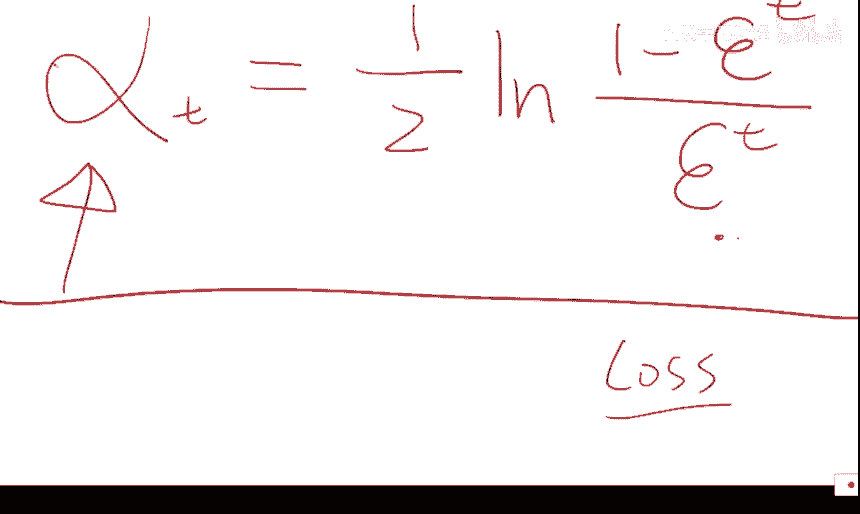 α_t = 1/2 ln (1 - ε^t)/ε^t
Loss